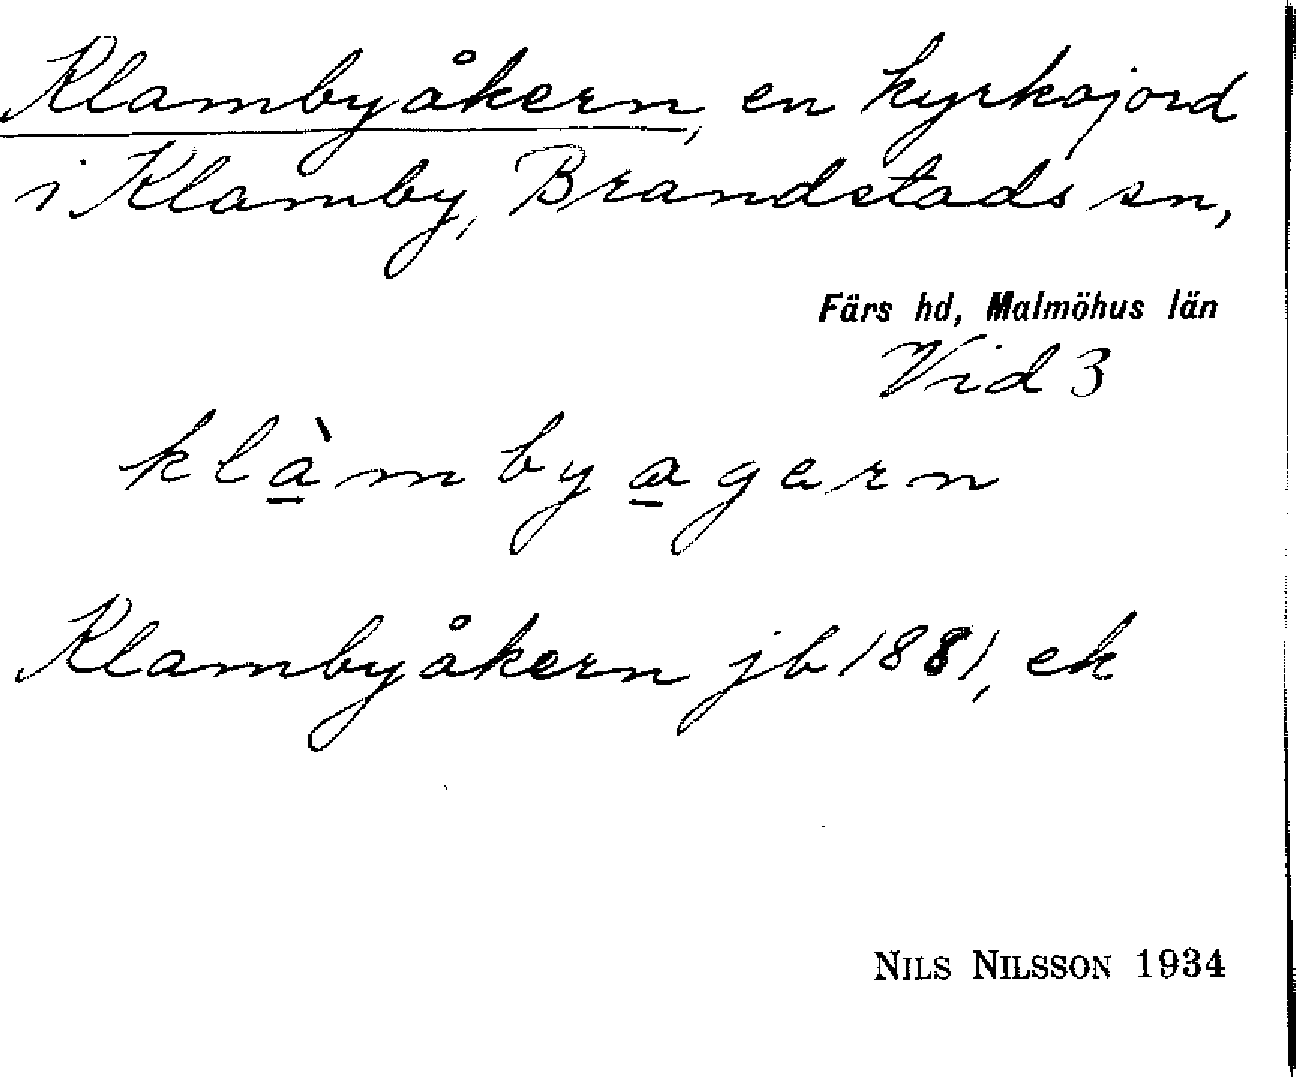 Klambyåkern, en kyrkojord
i Klamby, Brandstads sn,
Färs hd, Malmöhus län
Vid 3
klà̱mbya̱gern
Klambyåkern jb 1881, ek
NILS NILSSON 1934